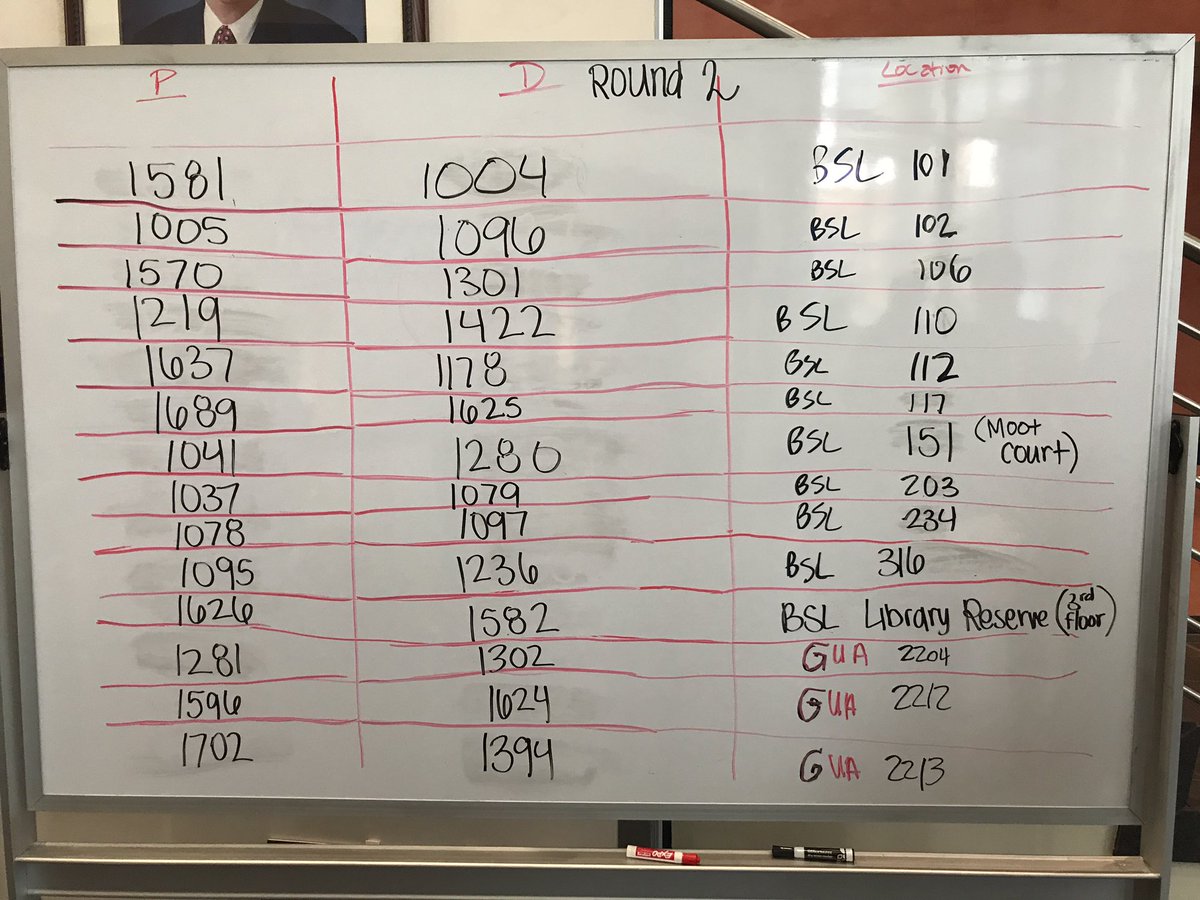 P D Round 2 Location
1581 1004 BSL 101
1005 1096 BSL 102
1570 1301 BSL 106
1219 1422 BSL 110
1637 1178 BSL 112
1689 1625 BSL 117
1041 1280 BSL 151 (Moot Court)
1037 1079 BSL 203
1078 1097 BSL 234
1095 1236 BSL 316
1626 1582 BSL Library Reserve (3rd floor)
1281 1302 GUA 2204
1596 1624 GUA 2212
1702 1394 GUA 2213
EXPO